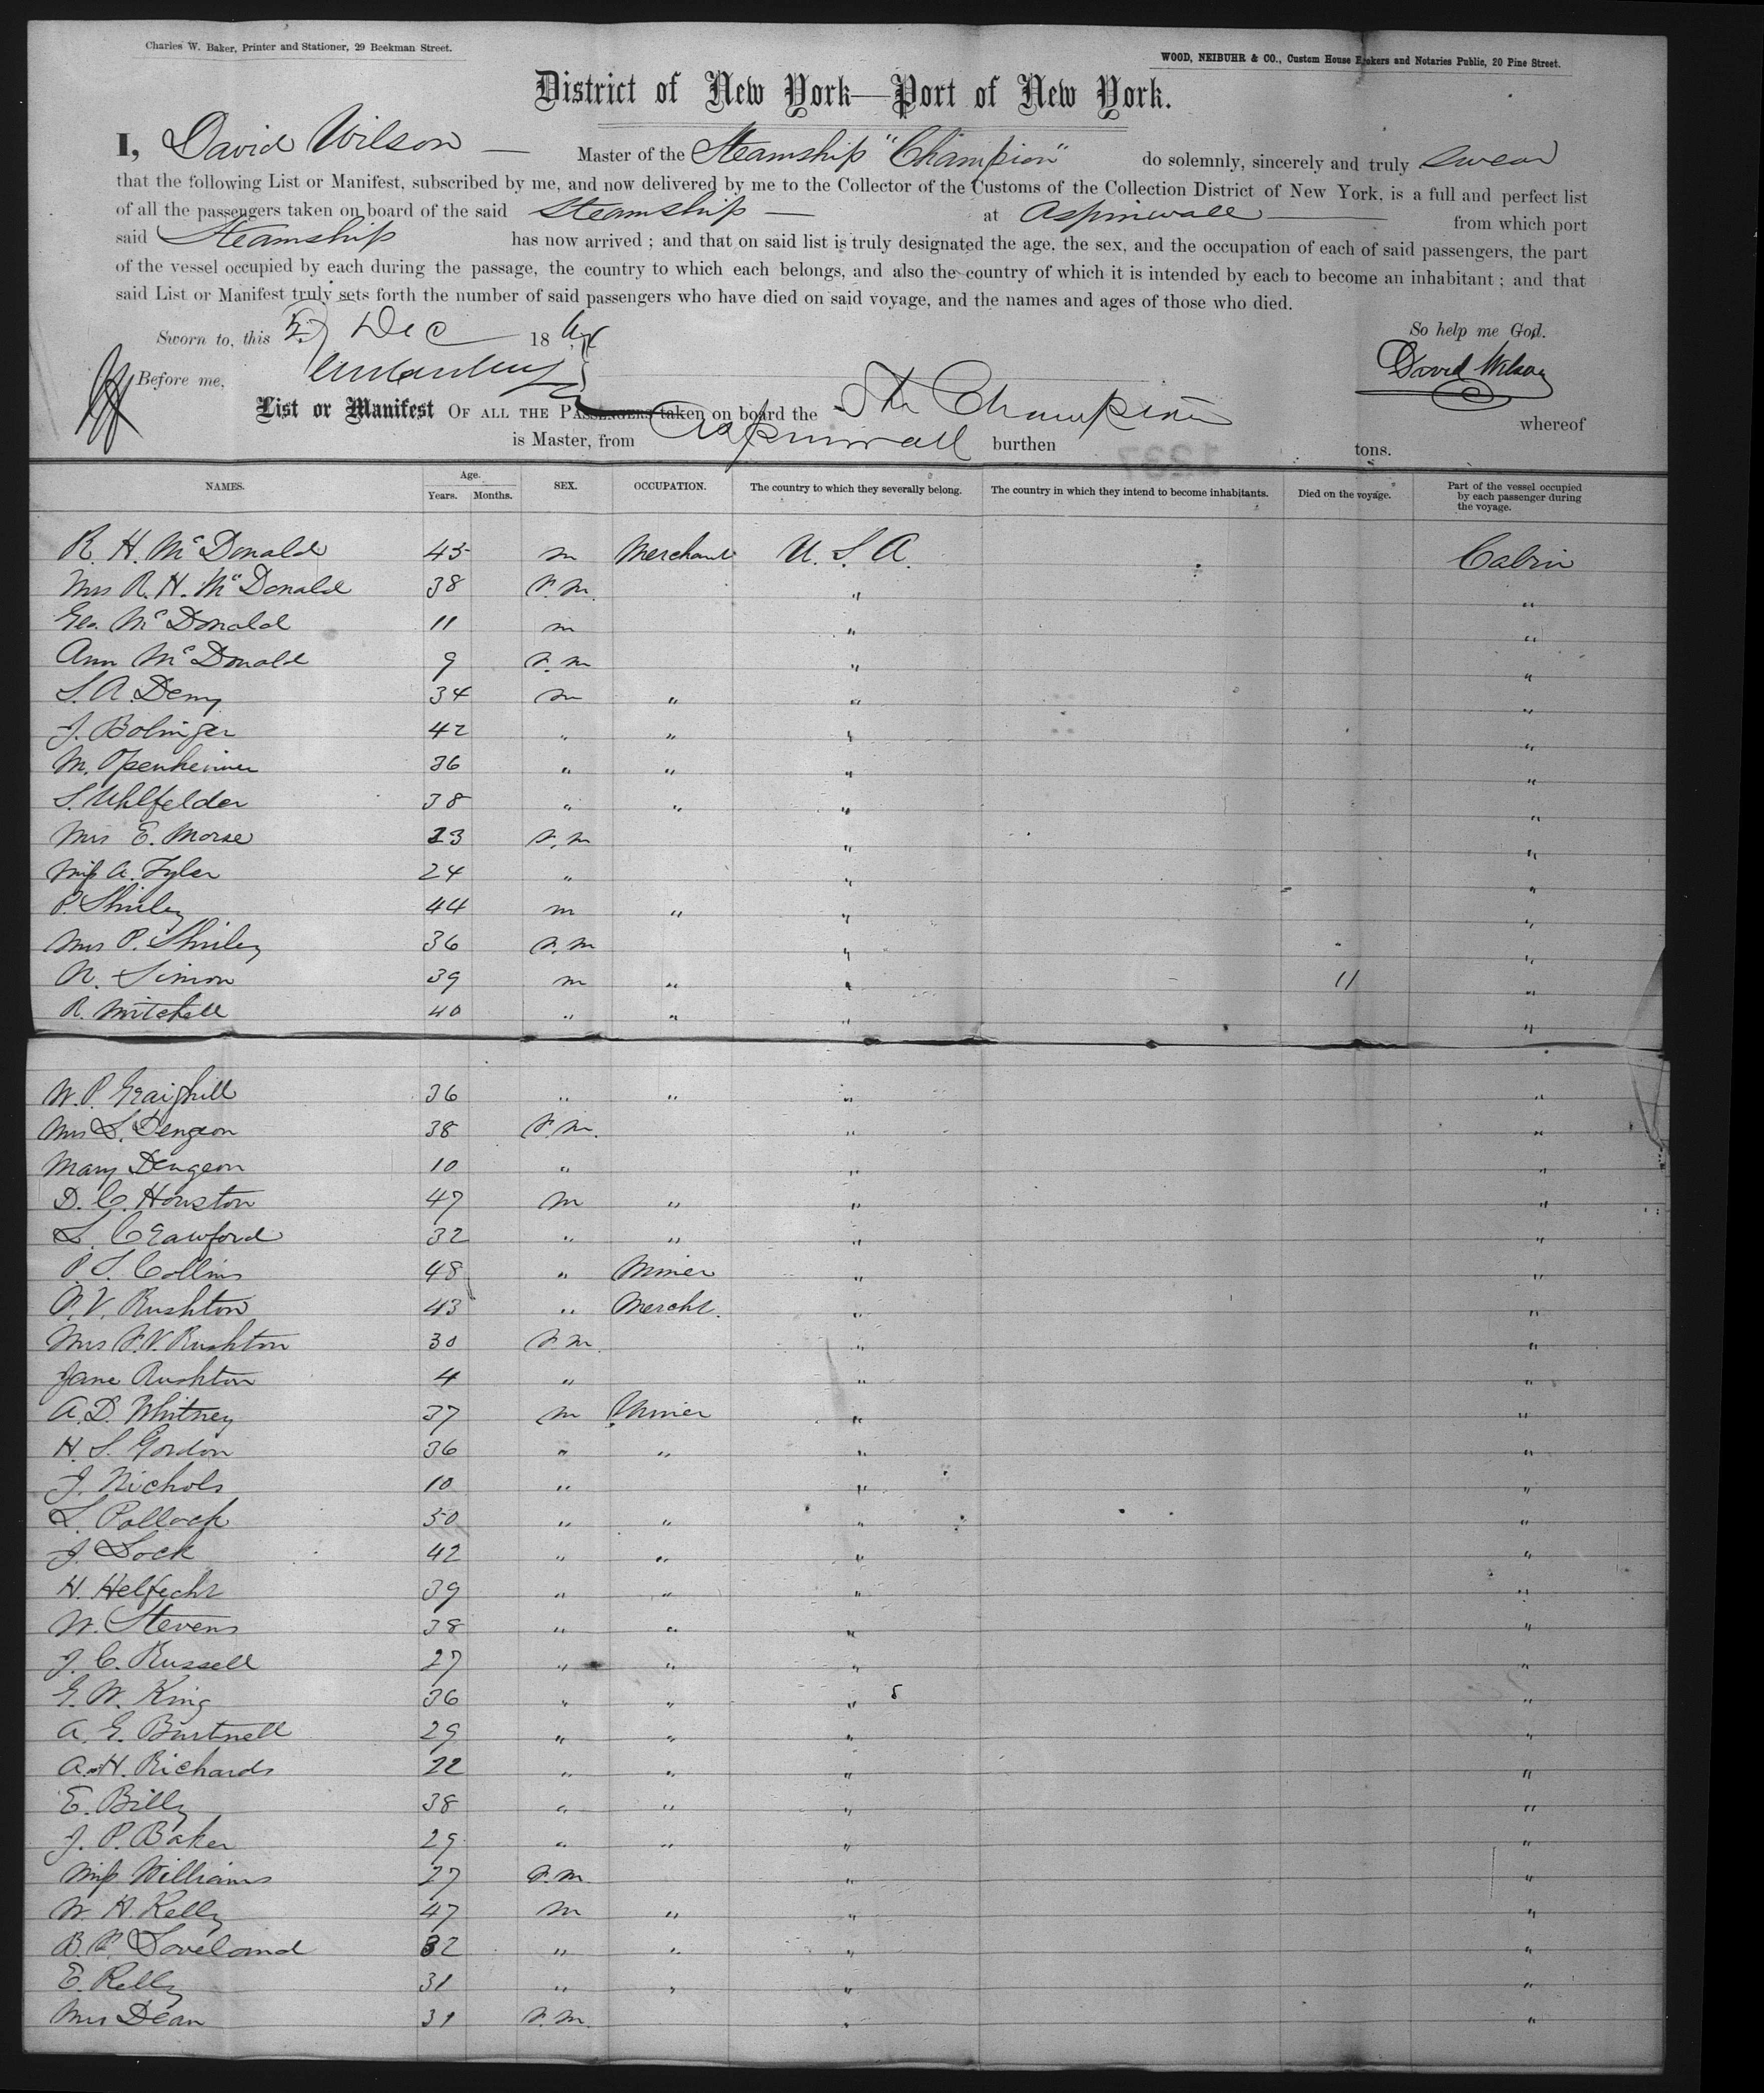 Charles W. Baker, Printer and Stationer, 29 Beekman Street.
WOOD, NEIBUHR & CO., Custom House Brokers and Notaries Public, 20 Pine Street.
District of New York—Port of New York.
I, David Wilson — Master of the Steamship "Champion" do solemnly, sincerely and truly swear
that the following List or Manifest, subscribed by me, and now delivered by me to the Collector of the Customs of the Collection District of New York, is a full and perfect list
of all the passengers taken on board of the said Steamship — at Aspinwall — from which port
said Steamship has now arrived ; and that on said list is truly designated the age, the sex, and the occupation of each of said passengers, the part
of the vessel occupied by each during the passage, the country to which each belongs, and also the country of which it is intended by each to become an inhabitant ; and that
said List or Manifest truly sets forth the number of said passengers who have died on said voyage, and the names and ages of those who died.
Sworn to, this 5 Dec 186
So help me God.
Before me,
David Wilson
List or Manifest OF ALL THE PASSENGERS taken on board the Str Champion whereof
is Master, from Aspinwall burthen tons.
NAMES. Age. Years. Months. SEX. OCCUPATION. The country to which they severally belong. The country in which they intend to become inhabitants. Died on the voyage. Part of the vessel occupied by each passenger during the voyage.
R. H. McDonald 45 m Merchant U. S. A. Cabin
Mrs R. H. McDonald 38 F. m. " "
Geo. McDonald 11 m " "
Ann McDonald 9 F. m " "
S. A. Demy 34 m " " "
J. Bolinger 42 " " " "
M. Openheimer 36 " " " "
S. Uhlfelder 38 " " " "
Mrs E. Morse 23 F. m " "
Miss A. Tyler 24 " " "
P. Shirley 44 m " " "
Mrs P. Shirley 36 F. m " "
N. Simon 39 m " " 11 "
R. Mitchell 40 " " " "
W. P. Graighill 36 " " " "
Mrs S. Dengeon 38 F. m. " "
Mary Dengeon 10 " " "
D. C. Houston 47 m " " "
L. Crawford 32 " " " "
P. S. Collins 48 " Miner " "
F. V. Rushton 43 " Mercht. " "
Mrs F. V. Rushton 30 F. m. " "
Jane Rushton 4 " " "
A. D. Whitney 37 m Miner " "
H. S. Gordon 36 " " " "
J. Nichols 10 " " "
L. Pollock 50 " " " "
J. Lock 42 " " " "
H. Helfecht 39 " " " "
W. Stevens 38 " " " "
J. C. Russell 27 " " " "
G. W. King 36 " " " "
A. G. Burtnell 29 " " " "
A. H. Richards 22 " " " "
E. Billy 38 " " " "
J. P. Baker 29 " " " "
Miss Williams 27 F. m. " "
W. H. Kelly 47 m " " "
B. P. Loveland 32 " " " "
E. Kelly 31 " " " "
Mrs Dean 31 F. m. " "